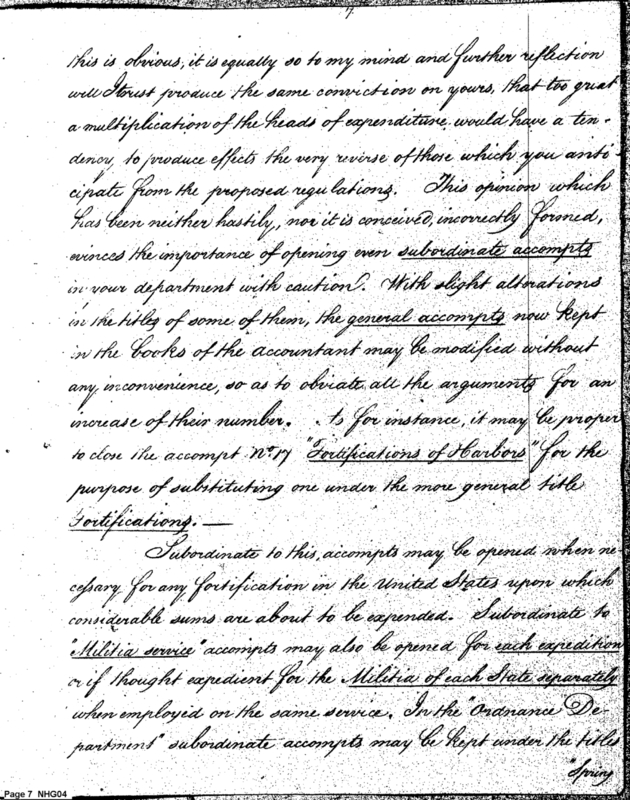 7.
this is obvious, it is equally so to my mind and further reflection
will I trust produce the same conviction on yours, that too great
a multiplication of the heads of expenditure would have a ten-
dency, to produce effects the very reverse of those which you anti-
cipate from the proposed regulations. This opinion which
has been neither hastily, nor it is conceived, incorrectly formed,
evinces the importance of opening even subordinate accompts
in your department with caution. With slight alterations
in the titles of some of them, the general accompts now kept
in the books of the accountant may be modified without
any inconvenience, so as to obviate all the arguments for an
increase of their number. As for instance, it may be proper
to close the accompt No. 17 "Fortifications of Harbors" for the
purpose of substituting one under the more general title
Fortifications. —
Subordinate to this, accompts may be opened when ne-
cessary for any fortification in the United States upon which
considerable sums are about to be expended. Subordinate to
"Militia service" accompts may also be opened for each expedition
or if thought expedient for the Militia of each State separately
when employed on the same service. In the "Ordnance De-
partment" subordinate accompts may be kept under the titles
"Spring
Page 7 NHG04